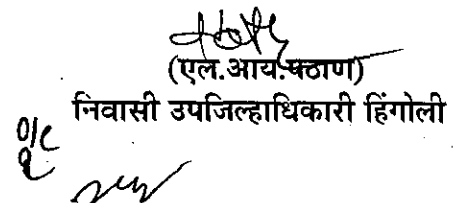 (एल.आय.पठाण)
निवासी उपजिल्हाधिकारी हिंगोली
o/c